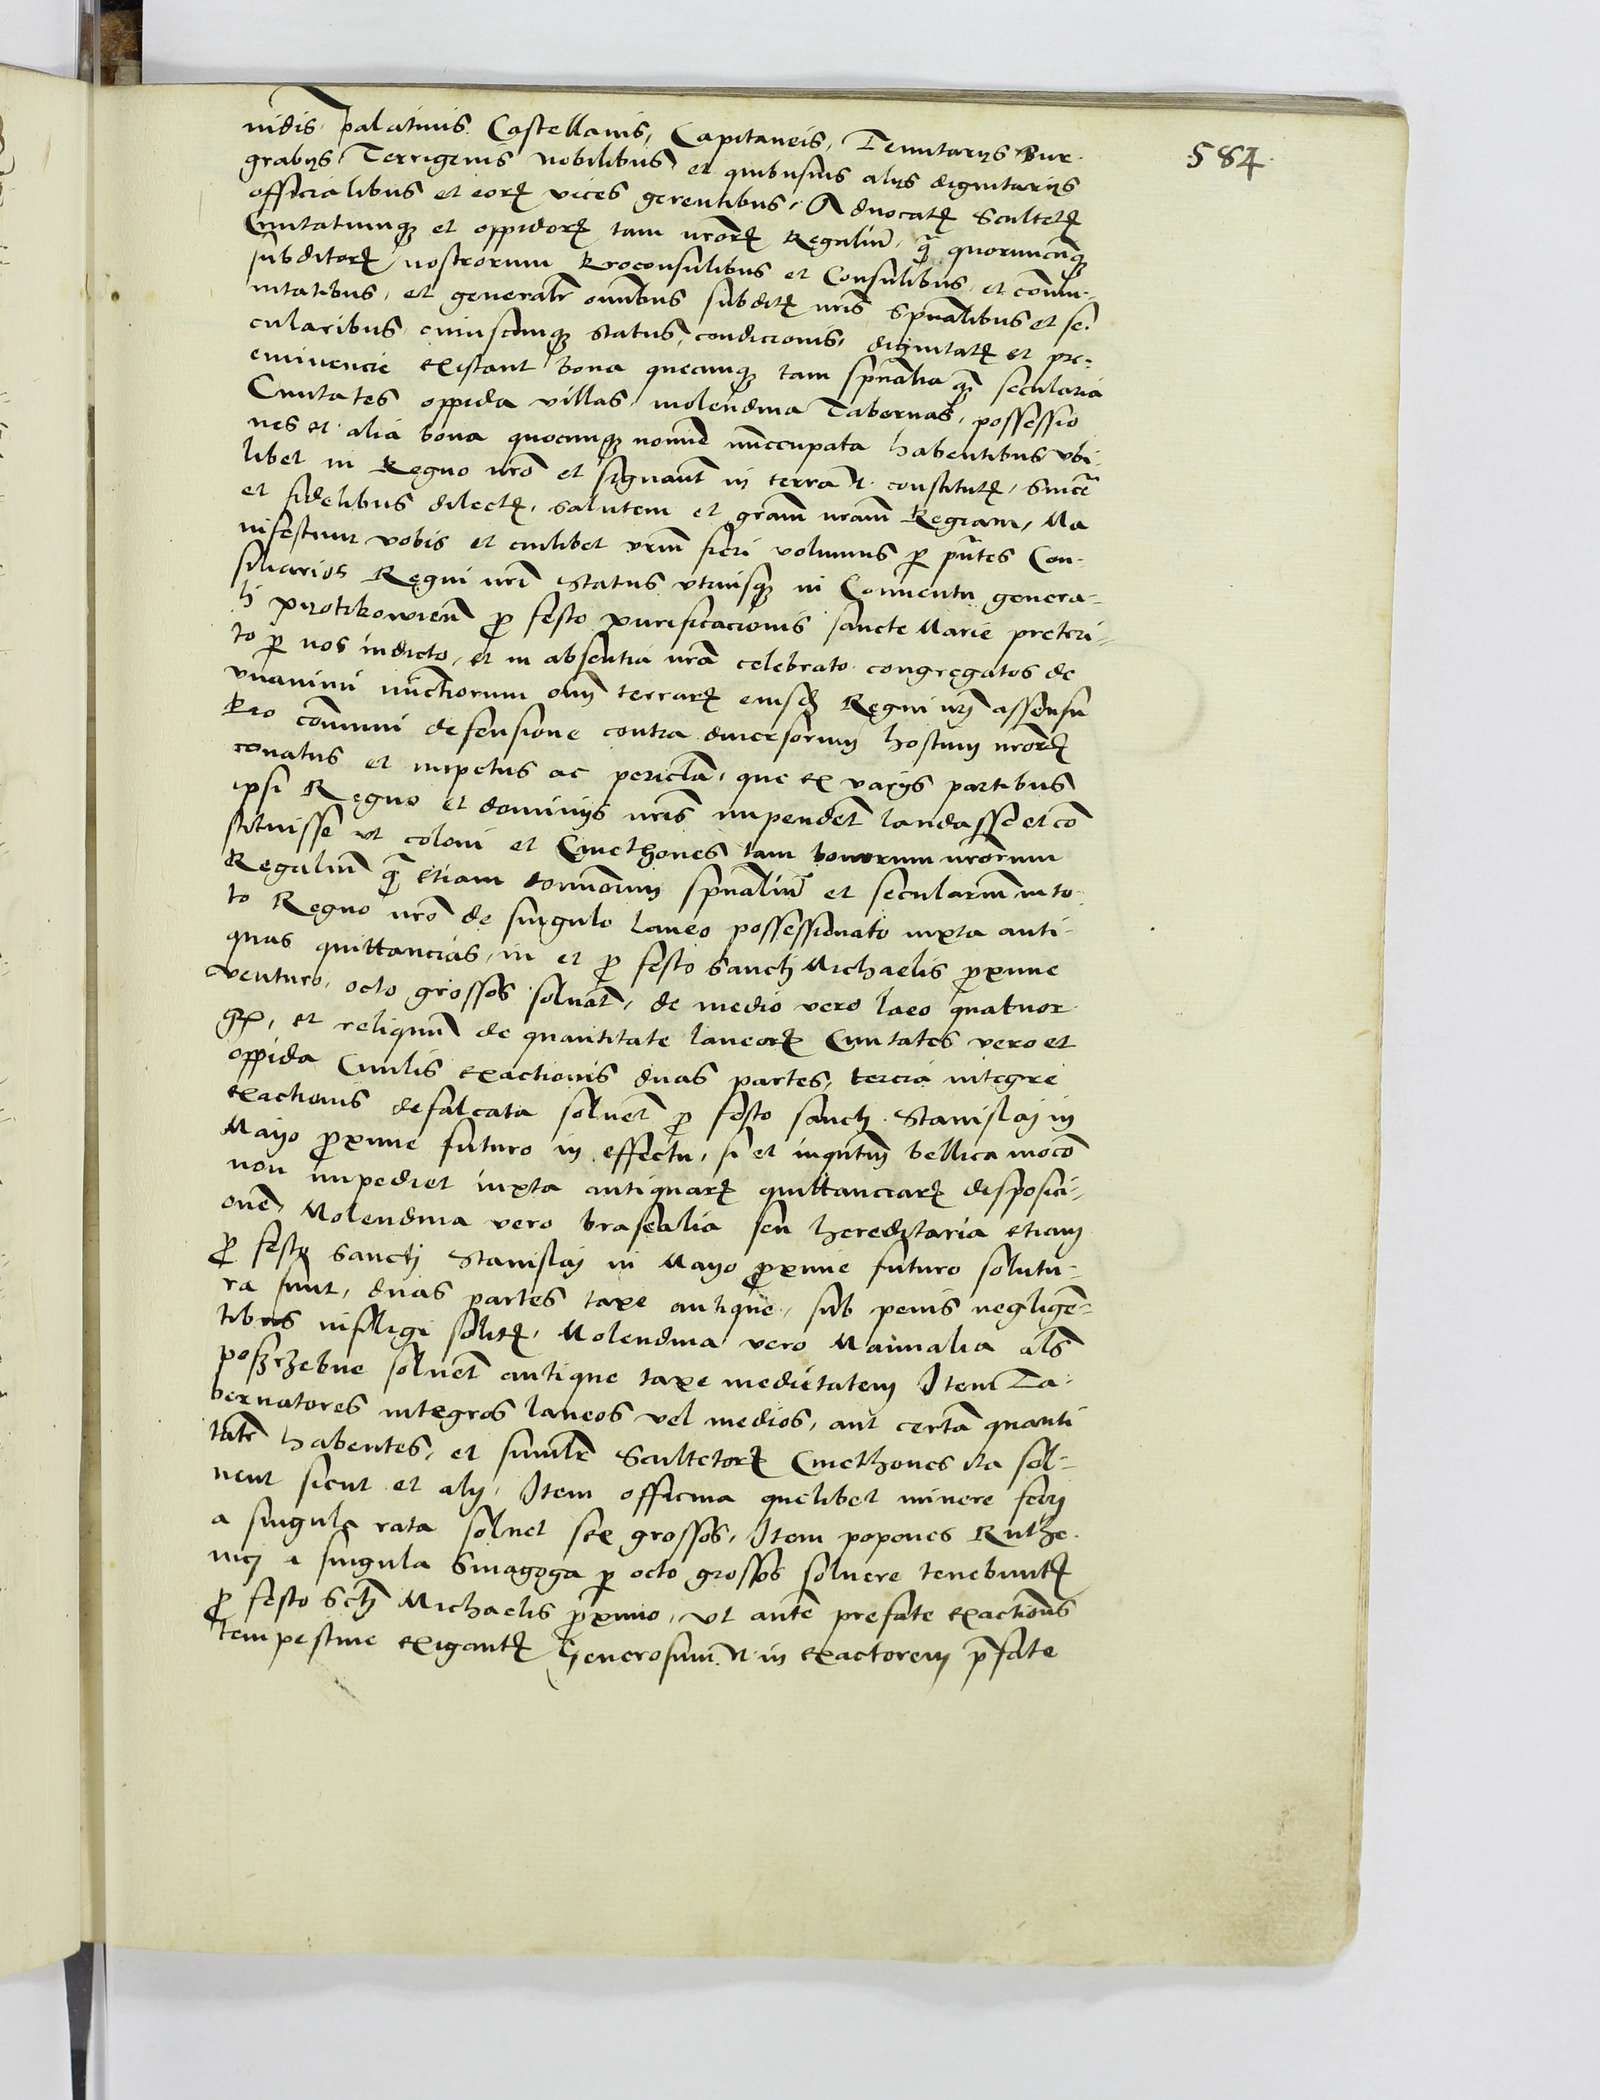 584
nidis, palatinis Castellanis, Capitaneis, Tenutarijs Bur-
grabijs, Terrigenis nobilibus et quibusuis alijs dignitarijs
officialibus et eorꝝ vices gerentibus, Aduocatꝭ Scultetꝭ
Ciuitatumqꝫ et oppidorꝝ tam nrorꝝ Regaliū, qȝ quorumcūqꝫ
subditorꝝ nostrorum Proconsulibus et Consulibus, et commu-
nitatibus, et generalr omnibus subditꝭ nris spualibus et se-
cularibus cuiuscunqꝫ status, condicionis, dignitatꝭ et pre-
eminencie existant bona quecunqꝫ tam spualia qȝ secularia
Ciuitates oppida villas, molendina Tabernas, possessio
nes et alia bona quocunqꝫ nomine nuncupata habentibus vbi-
libet in Regno nro et signant in terra N. constitutꝭ, sincē
et fidelibus dilectꝭ, salutem et gram nram Regiam, Ma
nifestum vobis et cuilibet vrm fieri volumus per pntes Con-
siliarios Regni nri Status vtriusqꝫ in Conuentu genera-
li Piotrkowien pro festo purificacionis sancte Marie preteri-
to per nos indicto, et in absentia nra celebrato congregatos de
vnanimi nunctiorum oim terrarꝝ eiusdꝫ Regni nri assensu
Pro communi defensione contra diuersorum hostium nrorꝝ
conatus et impetus ac pericla, que ex varijs partibus
ipsi Regno et dominijs nris impendent laudasse et con
stituisse vt coloni et Cmethones tam bonorum nrorum
Regaliū qȝ etiam bonorum spualiū et seculariū in to-
to Regno nro de singulo laneo possessionato iuxta anti-
quas quittancias, in et pro festo Sancti Michaelis proxime
venturo, octo grossos soluāt, de medio vero laeo quatuor
gr, et reliquum de quantitate laneorꝝ Ciuitates vero et
oppida Ciuilis exactionis duas partes, tercia integre
exactionis defalcata soluent pro festo sancti Stanislaj in
Mayo proxime futuro in effectu, si et inquātum bellica mocō
non impediet iuxta antiquarꝝ quittanciarꝝ disposici-
onem Molendina vero brasealia seu hereditaria etiam
pro festo Sancti Stanislaj in Mayo proxime futuro solutu-
ra sunt, duas partes taxe antique, sub penis negligen-
tibus infligi solitꝭ, Molendina vero Manualia als
poszrzebne soluent antique taxe medietatem Item Ta-
bernatores integros laneos vel medios, aut certam quanti
tatē habentes, et similr Scultetorꝝ Cmethones ita sol-
uent sicut et alij, Item officina quelibet minere ferrj
a singula rata soluet sex grossos, Item popones Ruthe-
nicj a singula Sinagoga per octo grossos soluere tenebuntꝛ
pro festo Scti Michaelis proximo, vt autem prefate exactiones
tempestiue exigantꝛ Generosum N in exactorem prefate